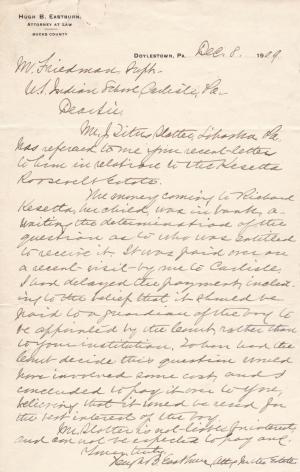 HUGH B. EASTBURN,
ATTORNEY AT LAW
BUCKS COUNTY
DOYLESTOWN, PA. Dec. 8, 1909.
M. Friedman Supt.
U.S. Indian School Carlisle, Pa.
Dear Sir,
Mr. J. Slotter, Pa
has referred to me your recent letter
to him in relation to the Kesetta
Roosevelt Estate.
The money coming to Richard
Kesetta, her child, was in bank, a-
waiting the determination of the
question as to who was entitled
to receive it. It was paid over on
a recent visit by me to Carlisle.
I had delayed the payment, inclin-
ing to the belief that it should be
paid to a guardian of the boy to
be appointed by the Court, rather than
to your institution. To have had the
Court decide this question would
have involved some cost, and I
concluded to pay it over to you,
believing that it would be used for
the best interest of the boy.
Mr. Slotter is not liable for interest
and can not be expected to pay any.
Yours truly,
Hugh B. Eastburn Atty for the Estate